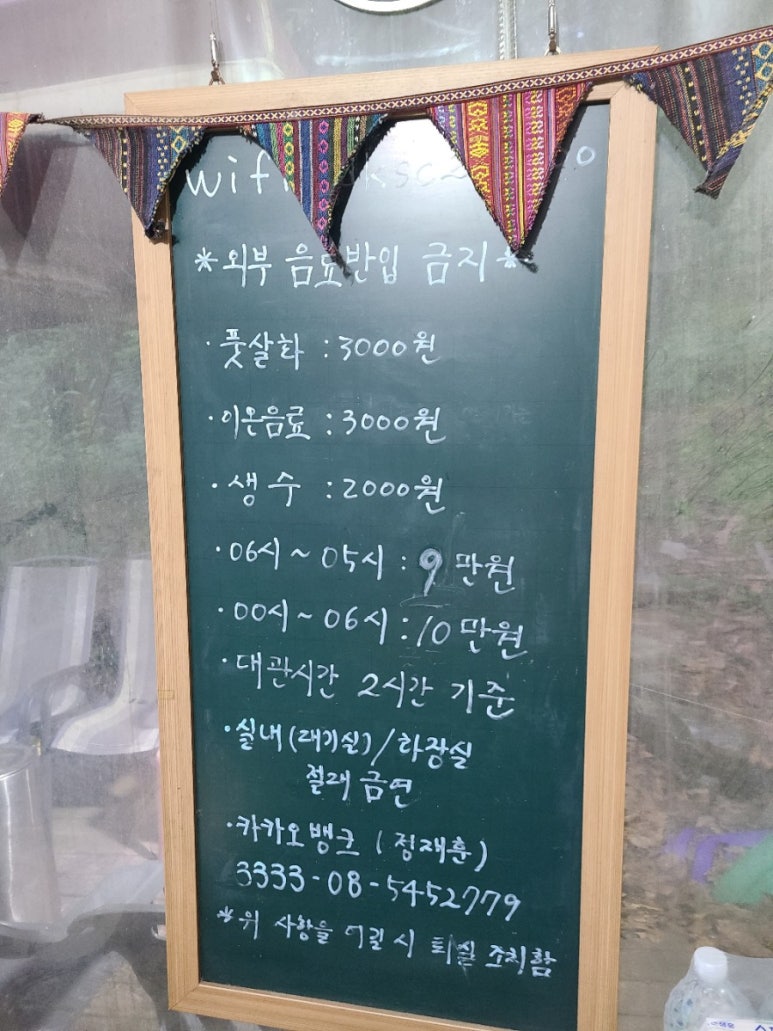 wifi
*외부 음료반입 금지*
·풋살화 : 3000원
·이온음료 : 3000원
·생수 : 2000원
·06시~05시 : 9만원
·00시~06시 : 10만원
·대관시간 2시간 기준
·실내(대기실)/화장실
절래 금연
·카카오뱅크 (정재훈)
3333-08-5452779
*위 사항을 어길 시 퇴실 조치함